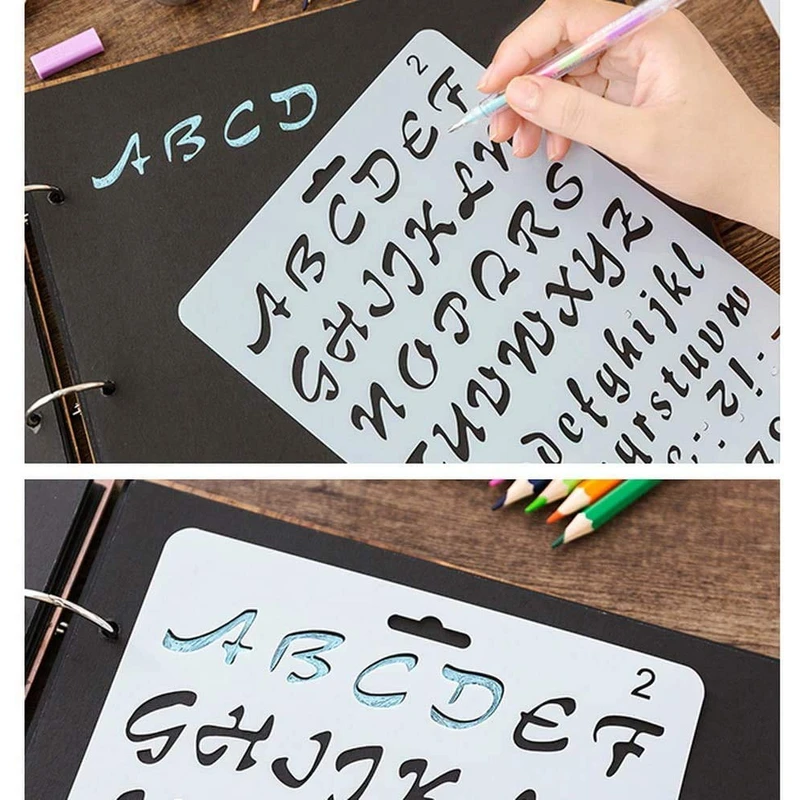 ABCD
2
ABCDEF
GHIJKL
NOPQRS
TUVWXYZ
defghijkl
qrstuvw
2
ABCDEF
GHIJK